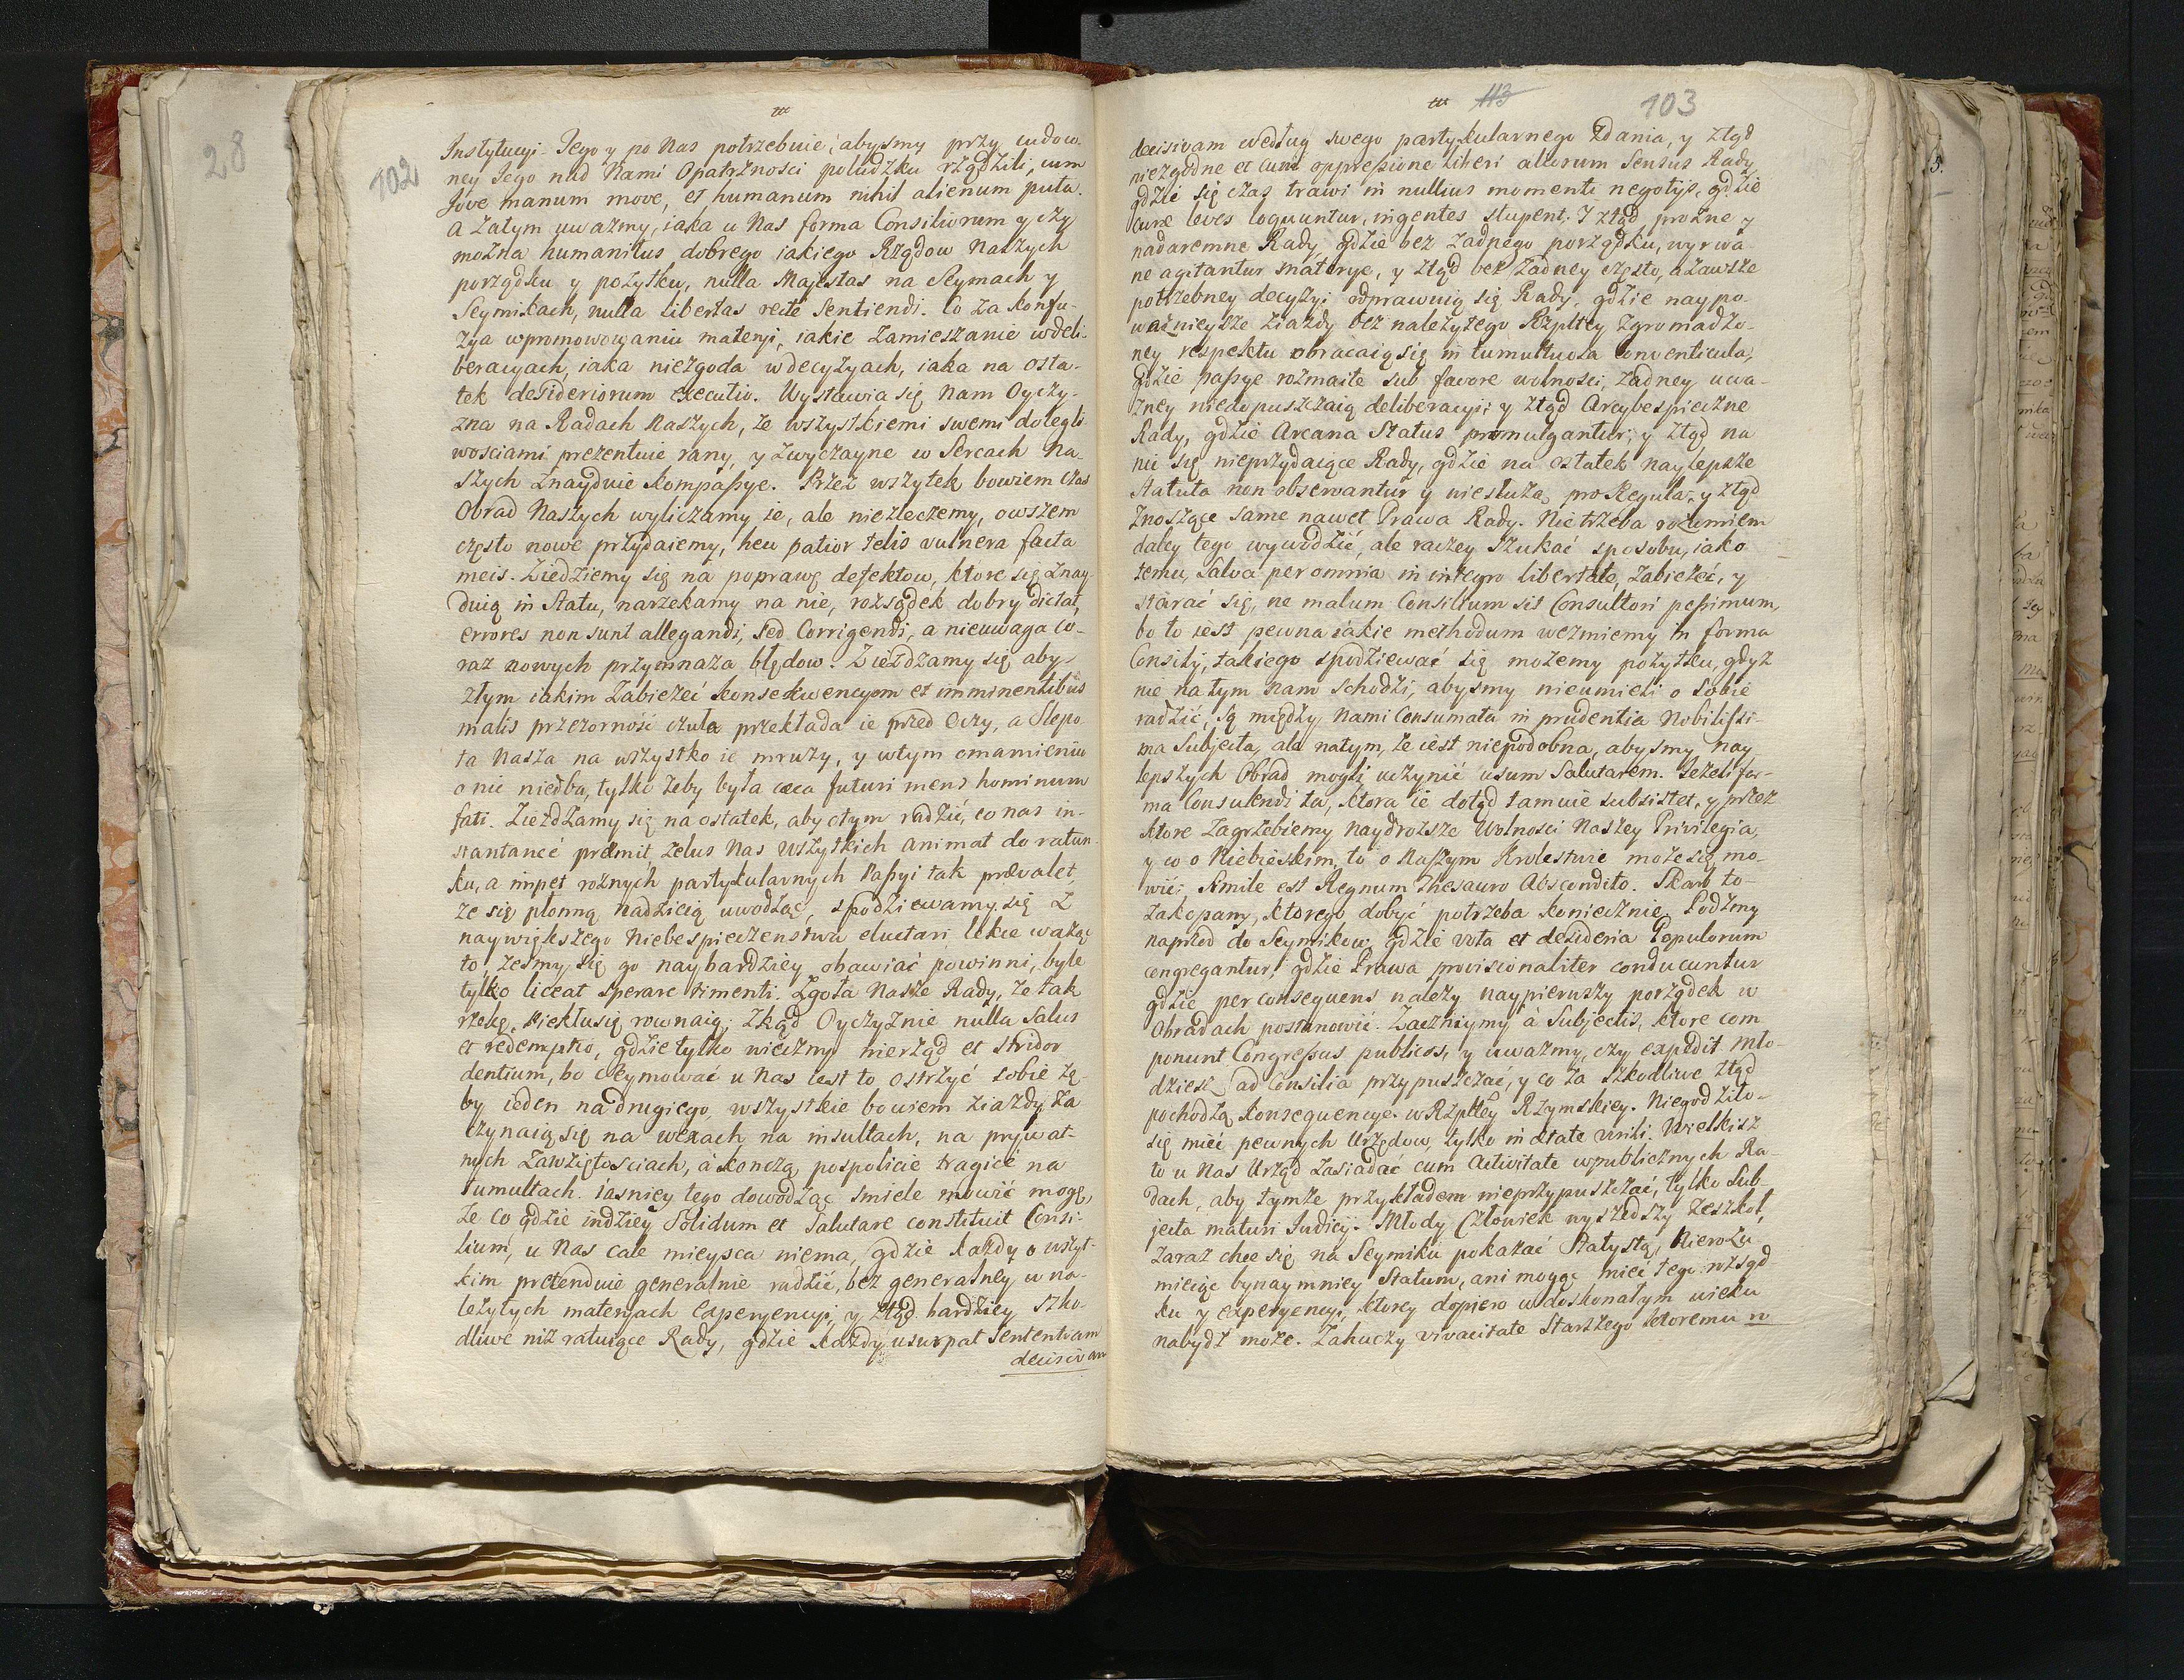 28
102
Instytucyi Jego y po Nas potrzebuie, abysmy przy cudow-
ney Jego nad Nami Opatrznosci poludzku rządzili, cum
Jove manum move, et humanum nihil alienum puta.
a Zatym uwazmy, iaka u Nas forma Consiliorum y czy
mozna humanitus dobrego iakiego Rządow Naszych
porządku y pozytku, nulla Majestas na Seymach y
Seymikach, nulla libertas recte Sentiendi. Co za konfu-
zya wpromowowaniu materyi, iakie Zamieszanie wdeli-
beracyach, iaka niezgoda wdecyzyach, iaka na osta-
tek desideriorum executio. Wystawia się Nam Oyczy-
zna na Radach Naszych, ze wszystkiemi swemi dolegli
wosciami prezentuie rany, y zwyczayne w Sercach Na-
szych Znayduie kompaßye. Przez wszytek bowiem czas
Obrad Naszych wyliczamy ie, ale niezleczemy, owszem
często nowe przydaiemy, heu patior telis vulnera facta
meis. Ziedziemy się na poprawę defektow, ktore się znay
duią in Statu, narzekamy na nie, rozsądek dobry dictat,
errores non sunt allegandi, sed Corrigendi, a nieuwaga co-
raz nowych przymnaza błędow. Ziezdzamy się aby
złym iakim Zabiezeć konsekwencyom et imminentibus
malis przezornosć czuła przekłada ie przed Oczy, a Slepo
ta Nasza na wszystko ie mruzy, y wtym omamieniu
o nie niedba, tylko zeby była cæca futuri mens hominum
fati. Ziezdzamy się na ostatek, aby otym radzić, co nas in-
stantanee premit, Zelus Nas Wszystkich animat do ratun-
ku, a impet roznych partykularnych Paßyi tak prævalet,
ze się płonną Nadzieią uwodząc, spodziewamy się z
naywiększego Niebespieczenstwa eluctari, lekce waząc
to, zesmy się go naybardziey obawiać powinni, byle
tylko liceat sperare timenti. Zgoła Nasze Rady, ze tak
rzekę, Piekłusię rownaią; Zkąd Oyczyznie nulla Salus
et redemptio, gdzie tylko wieczny nierząd et stridor
dentium, bo Seymować u Nas iest to ostrzyć sobie zę-
by ieden nadrugiego, wszystkie bowiem ziazdy za
czynaią się na wexach na insultach, na prywat-
nych Zawziętosciach, a konczą pospolicie tragice na
tumultach. iasniey tego dowodząc smiele mowić mogę,
ze co gdzie indziey Solidum et Salutare constituit Consi-
lium, u Nas cale mieysca niema, gdzie kazdy o wszyt-
kim pretenduie generalnie radzić, bez generalney w na-
lezytych materyach Experyencyi, y ztąd bardziey szko-
dliwe niz ratuiące Rady, gdzie kazdy usurpat Sententiam
decisivam
113
103
decisivam według swego partykularnego Zdania, y ztąd
niezgodne et cum oppreßione liberi aliorum Sensus Rady
gdzie się czas trawi in nullius momenti negotys, gdzie
curæ leves loquuntur, ingentes stupent. I ztąd prozne y
nadaremne Rady gdzie bez zadnego porządku, wyrwa-
ne agitantur materye, y ztąd bez zadney często, a zawsze
potrzebney decyzyi odprawuią się Rady, gdzie naypo-
wazniejsze Ziazdy bez nalezytego Rzpltey Zgromadzo-
ney respektu obracaią się in tumultuosa Conventicula,
gdzie paßye rozmaite sub favore wolnosci, zadney uwa-
zney niedopuszczaią deliberacyi; y ztąd Arcybespieczne
Rady, gdzie Arcana Status promulgantur, y ztąd na
nic się nieprzydaiące Rady, gdzie na ostatek naylepsze
Statuta non observantur y niesłuzą pro Regula, y ztąd
Znoszące same nawet Prawa Rady. Nie trzeba rozumiem
daley tego wywodzić, ale raczey szukać sposobu, iako
temu, Salva per omnia in integro libertate, zabiezeć, y
starać się, ne malum Consilium sit Consultori peßimum,
bo to iest pewna iakie methodum wezmiemy in forma
Consilij, takiego spodziewać się mozemy pozytku, gdyz
nie na tym Nam schodzi, abysmy nieumieli o sobie
radzić, są między Nami Consumata in prudentia Nobilißi-
ma Subjecta, ale natym, ze iest niepodobna, abysmy nay
lepszych Obrad mogli uczynić usum Salutarem. Jezeli for-
ma Consulendi ta, ktora ie dotąd tamuie subsistet, y przez
ktore Zagrzebiemy naydrozsze Wolnosci Naszey Privilegia,
y w o Niebieskim, to o Naszym Krolestwie moze się mo-
wić; Simile est Regnum Thesauro Abscondito. Skarb to
zakopany, ktorego dobyć potrzeba koniecznie. Podzmy
naprzod do Seymikow, gdzie vota et desideria Populorum
congregantur, gdzie Prawa provisionaliter conducuntur
gdzie per consequens nalezy naypierwszy porządek w
Obradach postanowić. Zacznimy à Subjectis, ktore com
ponunt Congreßus publicos, y uwazmy, czy expedit Mło-
dziesz ad Consilia przypuszczać, y co za szkodliwe ztąd
pochodzą konsequencye. wRzpltey Rzymskiey. Niegodziło-
się mieć pewnych Urzędow, tylko in ætate virili. Wielkisz
to u Nas Urząd Zasiadać cum Activitate wpublicznych Ra-
dach, aby tymze przykładem nieprzypuszczać, tylko Sub-
jecta maturi Judicij. Młody Człowiek wyszedszy zeszkoł,
zaraz chce się na Seymiku pokazać Statystą, Nierozu
mieiąc bynaymniey Statum, ani mogąc mieć tego rozsąd
ku y experyencyi, ktorey dopiero w doskonałym wieku
nabydź moze. Zahuczy vivacitate Starszego ktoremu ro